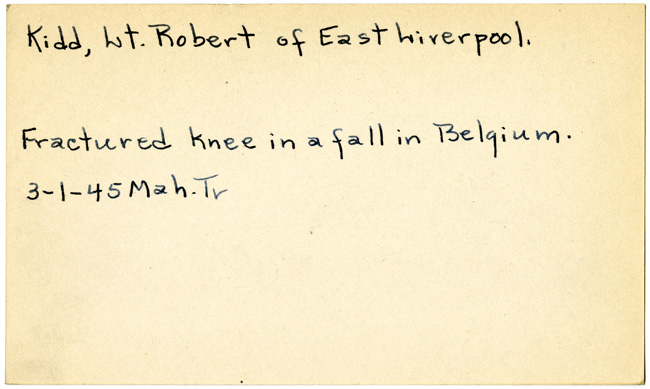 Kidd, Lt. Robert of East Liverpool.
Fractured knee in a fall in Belgium.
3-1-45 Mah. Tr